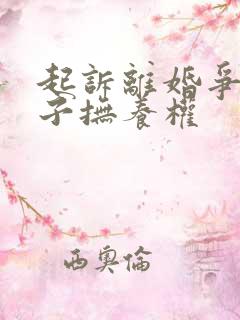 起訴離婚爭
子撫養權
西奧倫